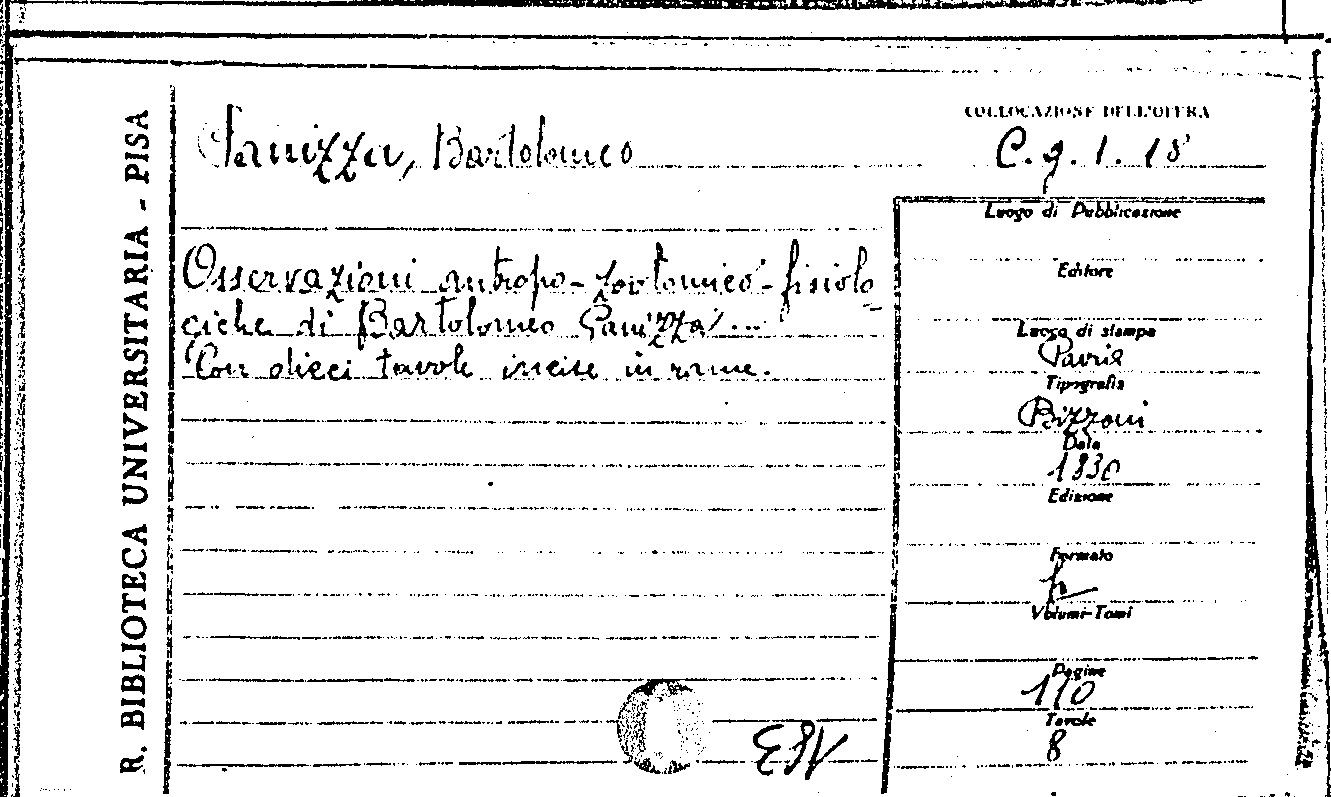 R. BIBLIOTECA UNIVERSITARIA - PISA
Panizza, Bartolomeo
COLLOCAZIONE DELL'OPERA
C. g. 1. 18
Osservazioni antropo-zootomico-fisiolo-
giche di Bartolomeo Panizza...
Con dieci tavole incise in rame.
Luogo di Pubblicazione
Editore
Luogo di stampa
Pavia
Tipografia
Bizzoni
Data
1830
Edizione
Formato
Volumi-Tomi
Pagine
110
Tavole
8